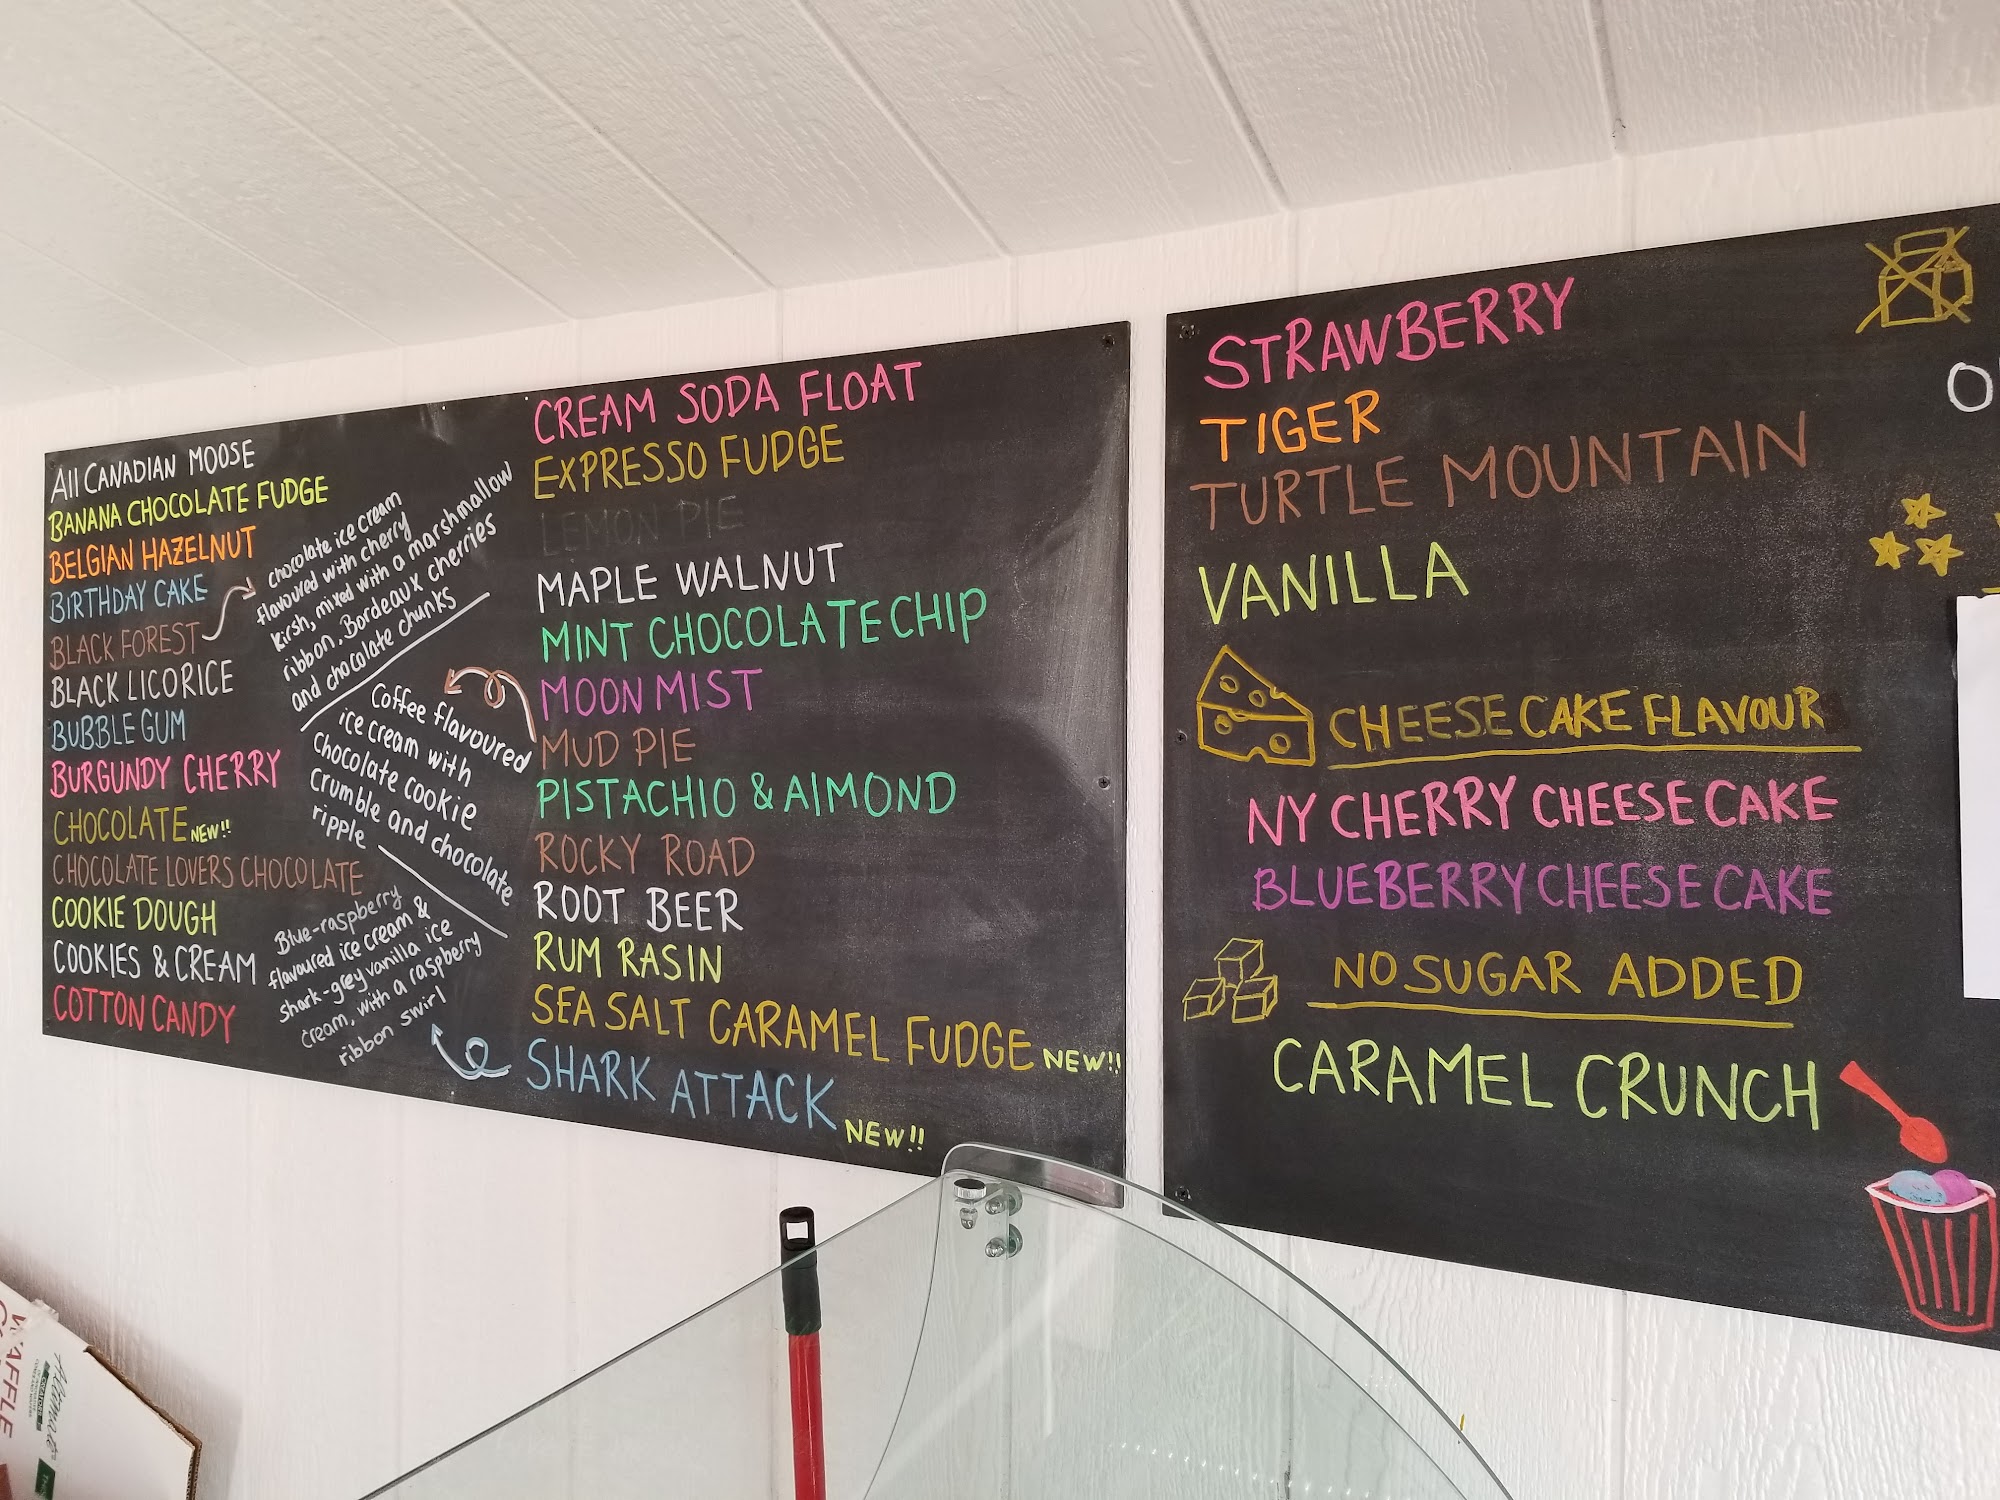 All CANADIAN MOOSE
BANANA CHOCOLATE FUDGE
BELGIAN HAZELNUT
BIRTHDAY CAKE
BLACK FOREST
BLACK LICORICE
BUBBLE GUM
BURGUNDY CHERRY
CHOCOLATE NEW!!
CHOCOLATE LOVERS CHOCOLATE
COOKIE DOUGH
COOKIES & CREAM
COTTON CANDY
chocolate ice cream
flavoured with cherry
Kirsh, mixed with a marshmallow
ribbon, Bordeaux cherries
and chocolate chunks
Coffee flavoured
ice cream with
chocolate cookie
crumble and chocolate
ripple
Blue-raspberry
flavoured ice cream &
shark-grey vanilla ice
cream, with a raspberry
ribbon swirl
CREAM SODA FLOAT
EXPRESSO FUDGE
LEMON PIE
MAPLE WALNUT
MINT CHOCOLATE CHIP
MOON MIST
MUD PIE
PISTACHIO & AlMOND
ROCKY ROAD
ROOT BEER
RUM RASIN
SEA SALT CARAMEL FUDGE NEW!!
SHARK ATTACK NEW!!
STRAWBERRY
TIGER
TURTLE MOUNTAIN
VANILLA
CHEESE CAKE FLAVOUR
NY CHERRY CHEESE CAKE
BLUEBERRY CHEESE CAKE
NO SUGAR ADDED
CARAMEL CRUNCH
WAFFLE